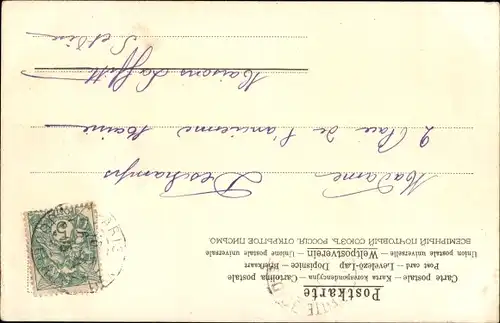 Postkarte
Carte postale
Karta korespondencyjna Cartolina postale
Post card Levelező-Lap Dopisnice Briefkaart
Union postale universelle Weltpostverein Unione postale universale
ВСЕМІРНЫЙ ПОЧТОВЫЙ СОЮЗЪ. РОССІЯ. ОТКРЫТОЕ ПИСЬМО.
Madame Deschamps
2 Place de l'ancienne Mairie
Maisons Laffitte
S et Oise